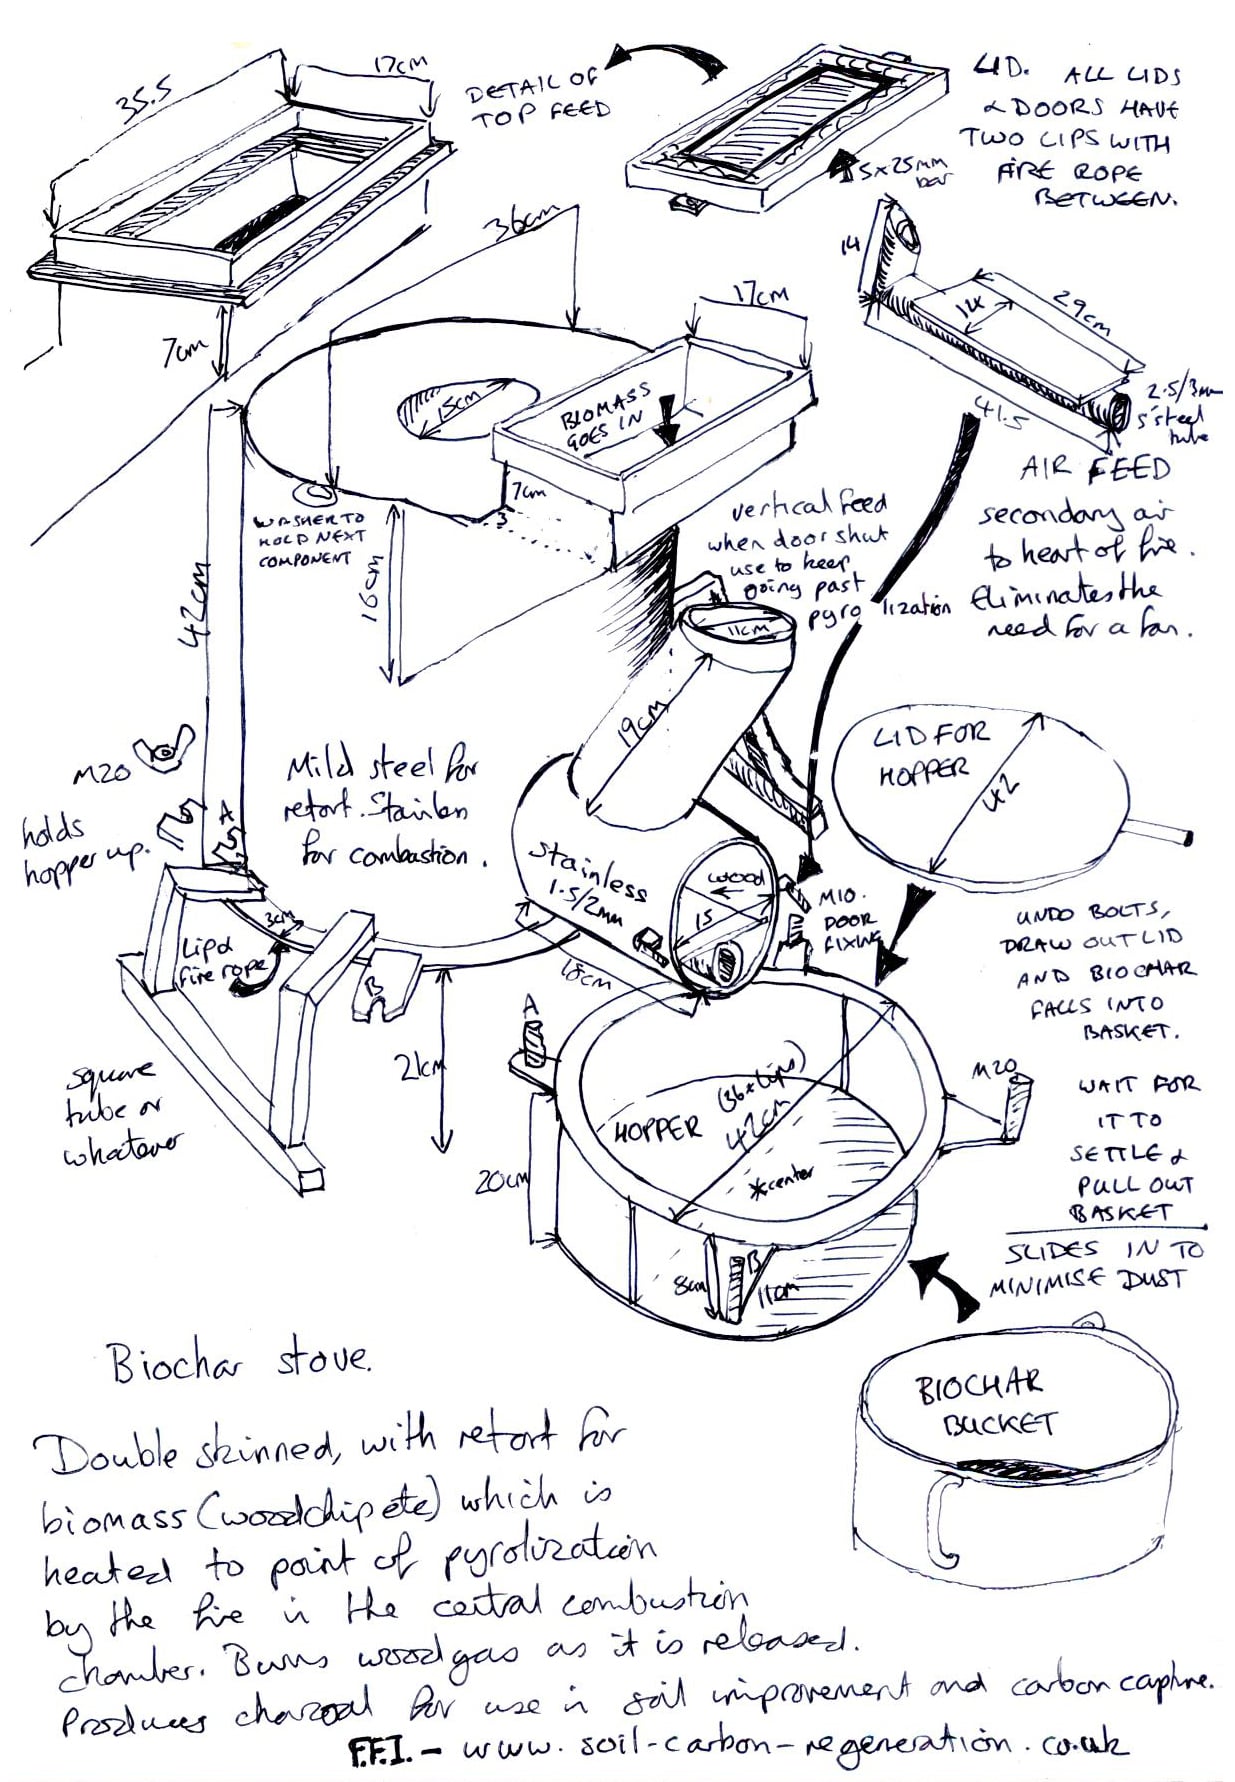 35.5
17cm
DETAIL OF
TOP FEED
LID. ALL LIDS
& DOORS HAVE
TWO LIPS WITH
FIRE ROPE
BETWEEN.
5x25mm
bar
7cm
36cm
17cm
14
12
29cm
41.5
2.5/3mm
s'steel
tube
AIR FEED
secondary air
to heart of fire.
Eliminates the
need for a fan.
15cm
BIOMASS
GOES IN
7cm
3
WASHER TO
HOLD NEXT
COMPONENT
16cm
42cm
vertical feed
when door shut
use to keep
going past
pyrolization
11cm
19cm
M20
holds
hopper up.
A
Mild steel for
retort. Stainless
for combustion.
Stainless
1.5/2mm
wood
15
M10.
DOOR
FIXING
LID FOR
HOPPER
42
3cm
Lip &
fire rope
B
18cm
21cm
square
tube or
whatever
UNDO BOLTS,
DRAW OUT LID
AND BIOCHAR
FALLS INTO
BASKET.
WAIT FOR
IT TO
SETTLE &
PULL OUT
BASKET
SLIDES IN TO
MINIMISE DUST
A
M20
HOPPER
(36+lips)
42cm
*center
20cm
8cm
B
11cm
BIOCHAR
BUCKET
Biochar stove.
Double skinned, with retort for
biomass (woodchip etc) which is
heated to point of pyrolization
by the fire in the central combustion
chamber. Burns woodgas as it is released.
Produces charcoal for use in soil improvement and carbon capture.
F.F.I. - www.soil-carbon-regeneration.co.uk